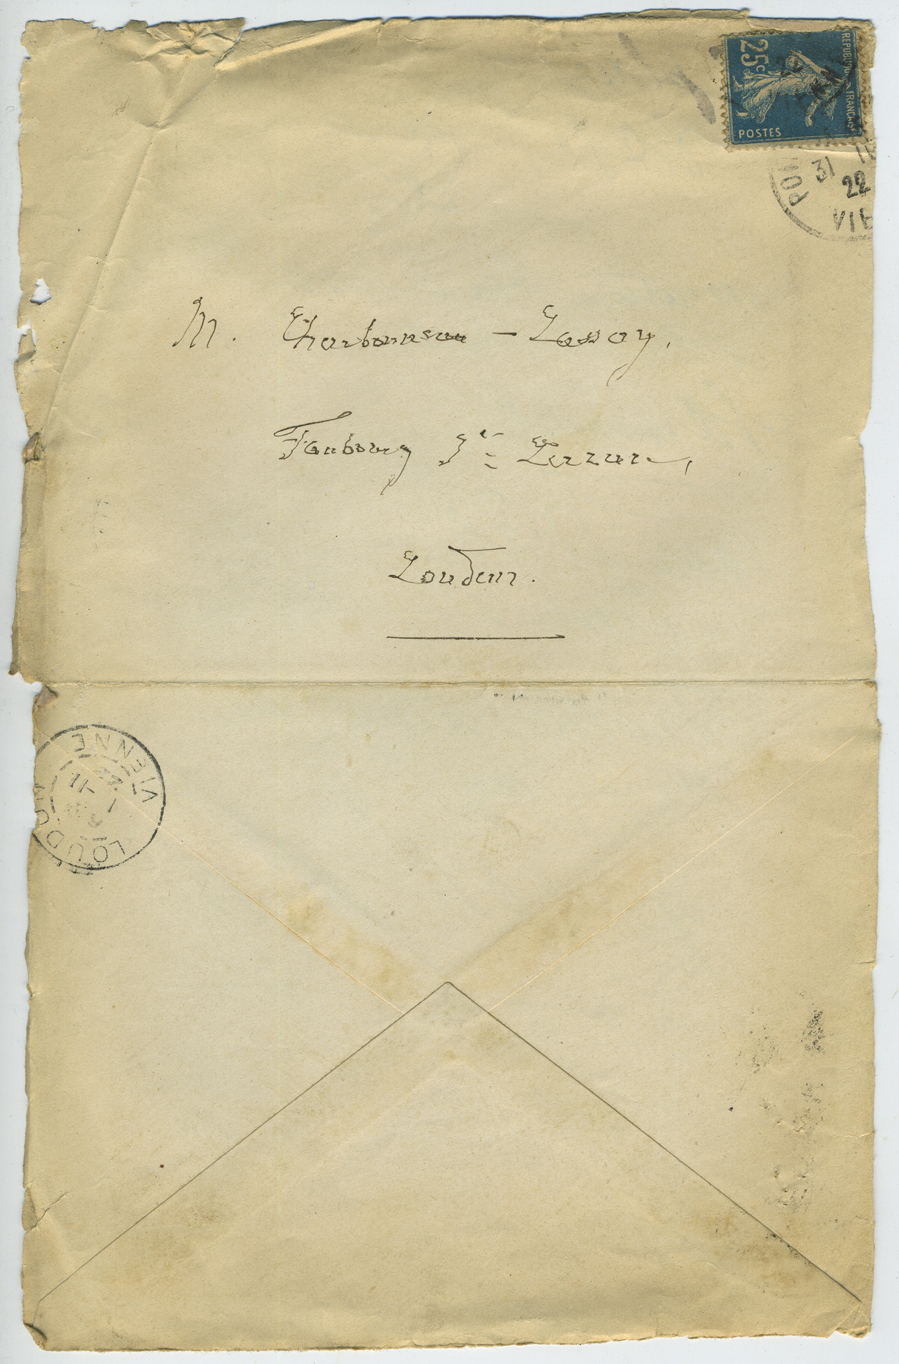 25c
REPUBLIQUE FRANCAISE
POSTES
31
22
M. Charbonneau-Lassay,
Faubourg St Lazare,
Loudun.
VIENNE
11
1
LOUDUN